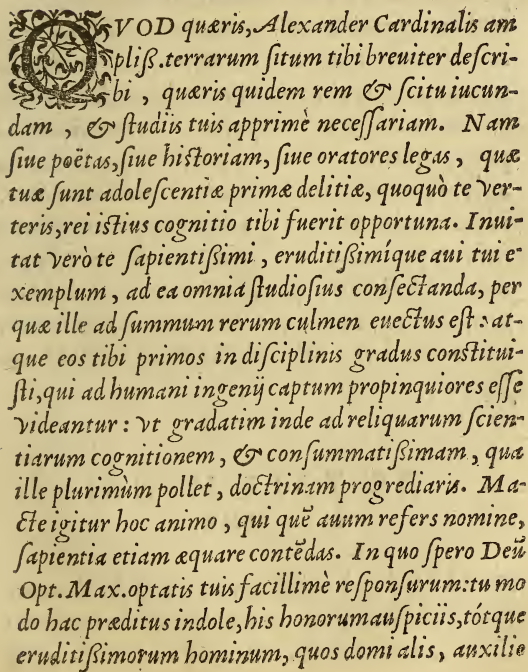 QVOD quæris, Alexander Cardinalis am
pliß. terrarum ſitum tibi breuiter deſcri-
bi , quæris quidem rem & ſcitu iucun-
dam , & ſtudiis tuis apprimè neceſſariam. Nam
ſiue poëtas, ſiue hiſtoriam, ſiue oratores legas , quæ
tuæ ſunt adoleſcentiæ primæ delitiæ, quoquò te ver-
teris, rei iſtius cognitio tibi fuerit opportuna. Inui-
tat verò te ſapientißimi , eruditißimíque aui tui e-
xemplum , ad ea omnia ſtudioſius conſectanda, per
quæ ille ad ſummum rerum culmen euectus eſt : at-
que eos tibi primos in diſciplinis gradus conſtitui-
ſti, qui ad humani ingenij captum propinquiores eſſe
videantur : vt gradatim inde ad reliquarum ſcien-
tiarum cognitionem , & conſummatißimam , qua
ille plurimùm pollet , doctrinam progrediaris. Ma-
cte igitur hoc animo , qui quē auum refers nomine,
ſapientia etiam æquare contēdas. In quo ſpero Deū
Opt. Max. optatis tuis facillimè reſponſurum: tu mo
do hac præditus indole, his honorum auſpiciis, tótque
eruditißimorum hominum, quos domi alis , auxilio